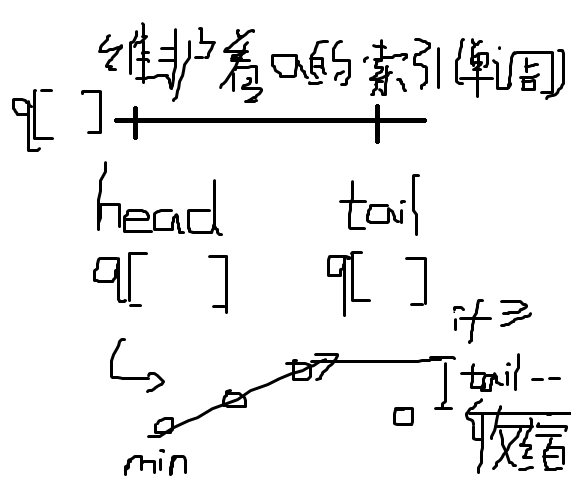 维护着a的索引(单调)
q[ ]
head tail
q[ ] q[ ]
if ≥
tail--
收缩
min